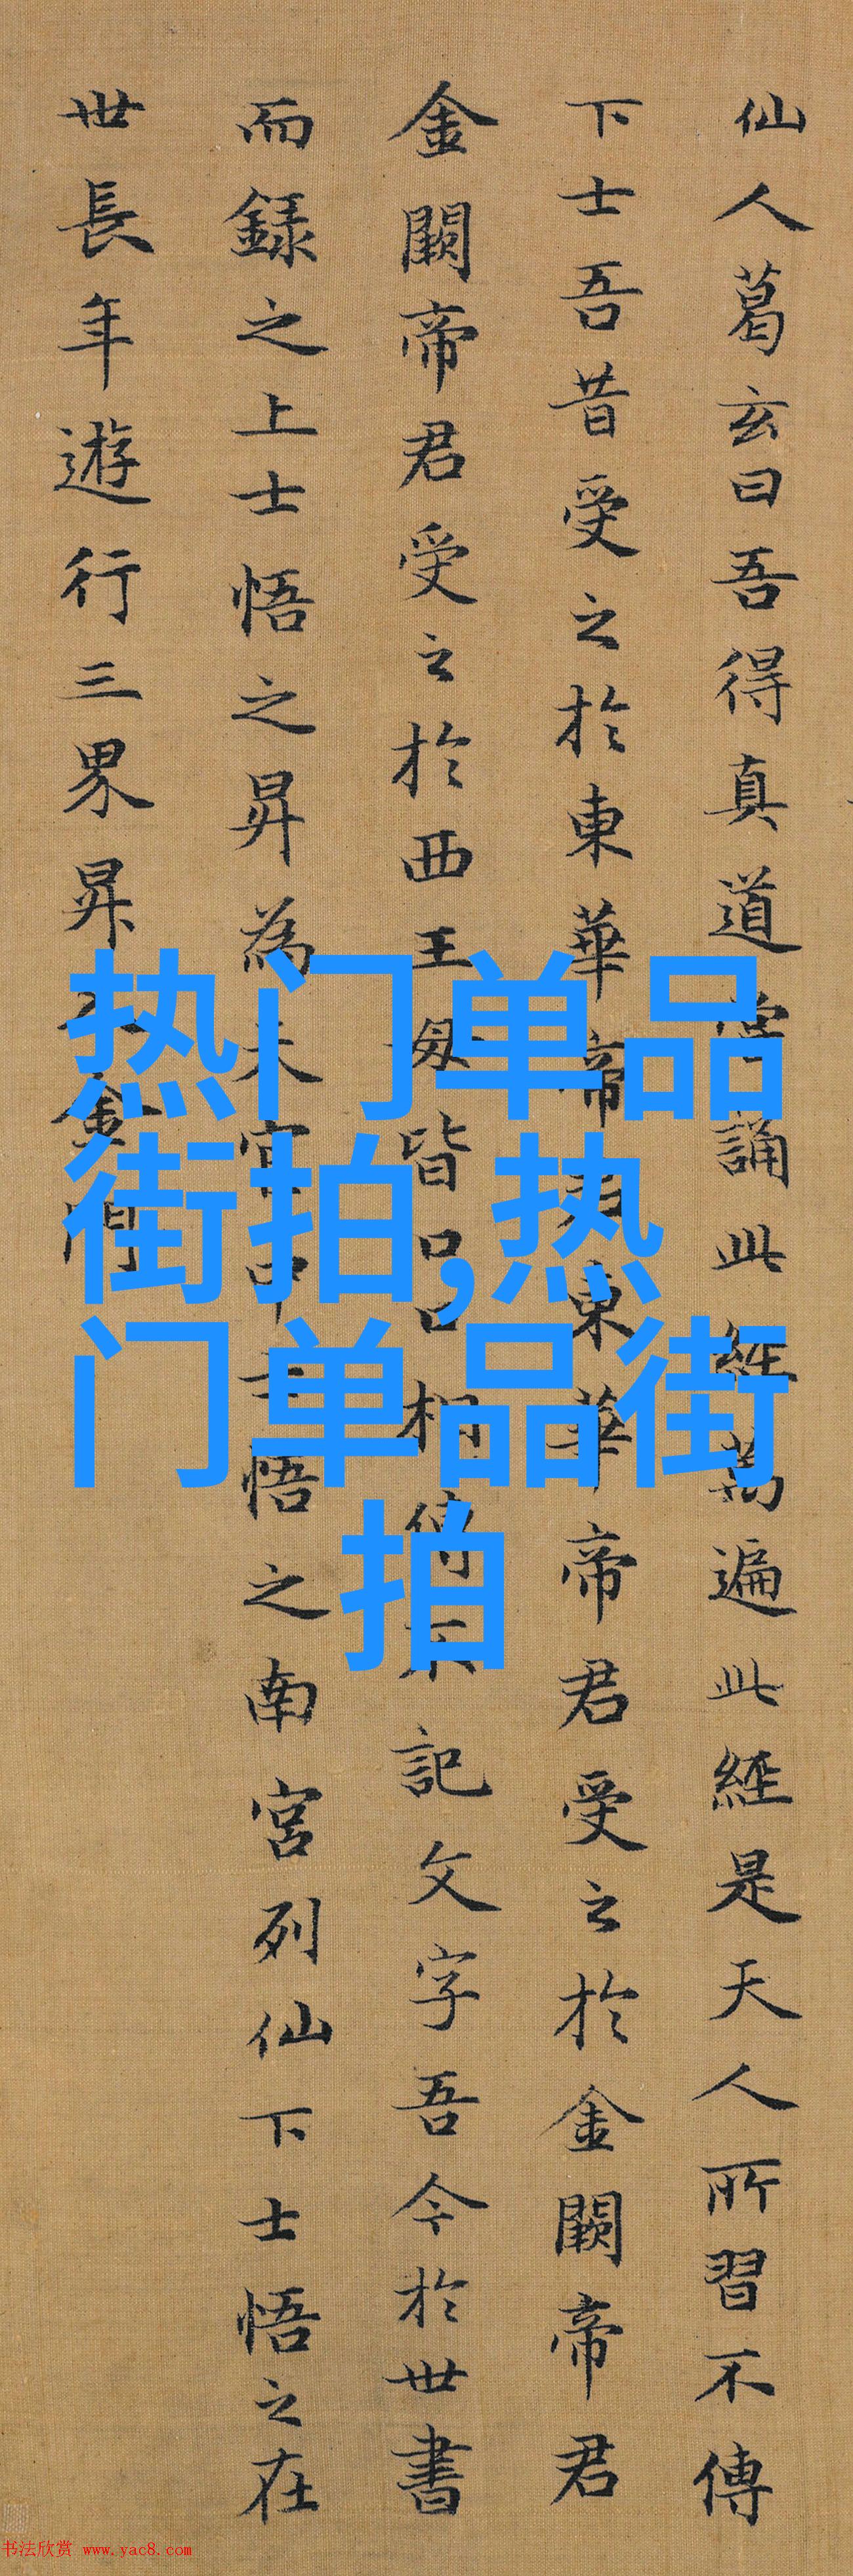 仙人葛玄曰吾得真道當誦此經萬遍此經是天人所習不傳
下士吾昔受之於東華帝君東華帝君受之於金闕帝君
金闕帝君受之於西王母皆口口相傳不記文字吾今於世書
而録之上士悟之昇為天官中士悟之南宮列仙下士悟之在
世長年遊行三界昇入金門
热门单品
街拍,热
门单品街
拍
书法欣赏 www.yac8.com